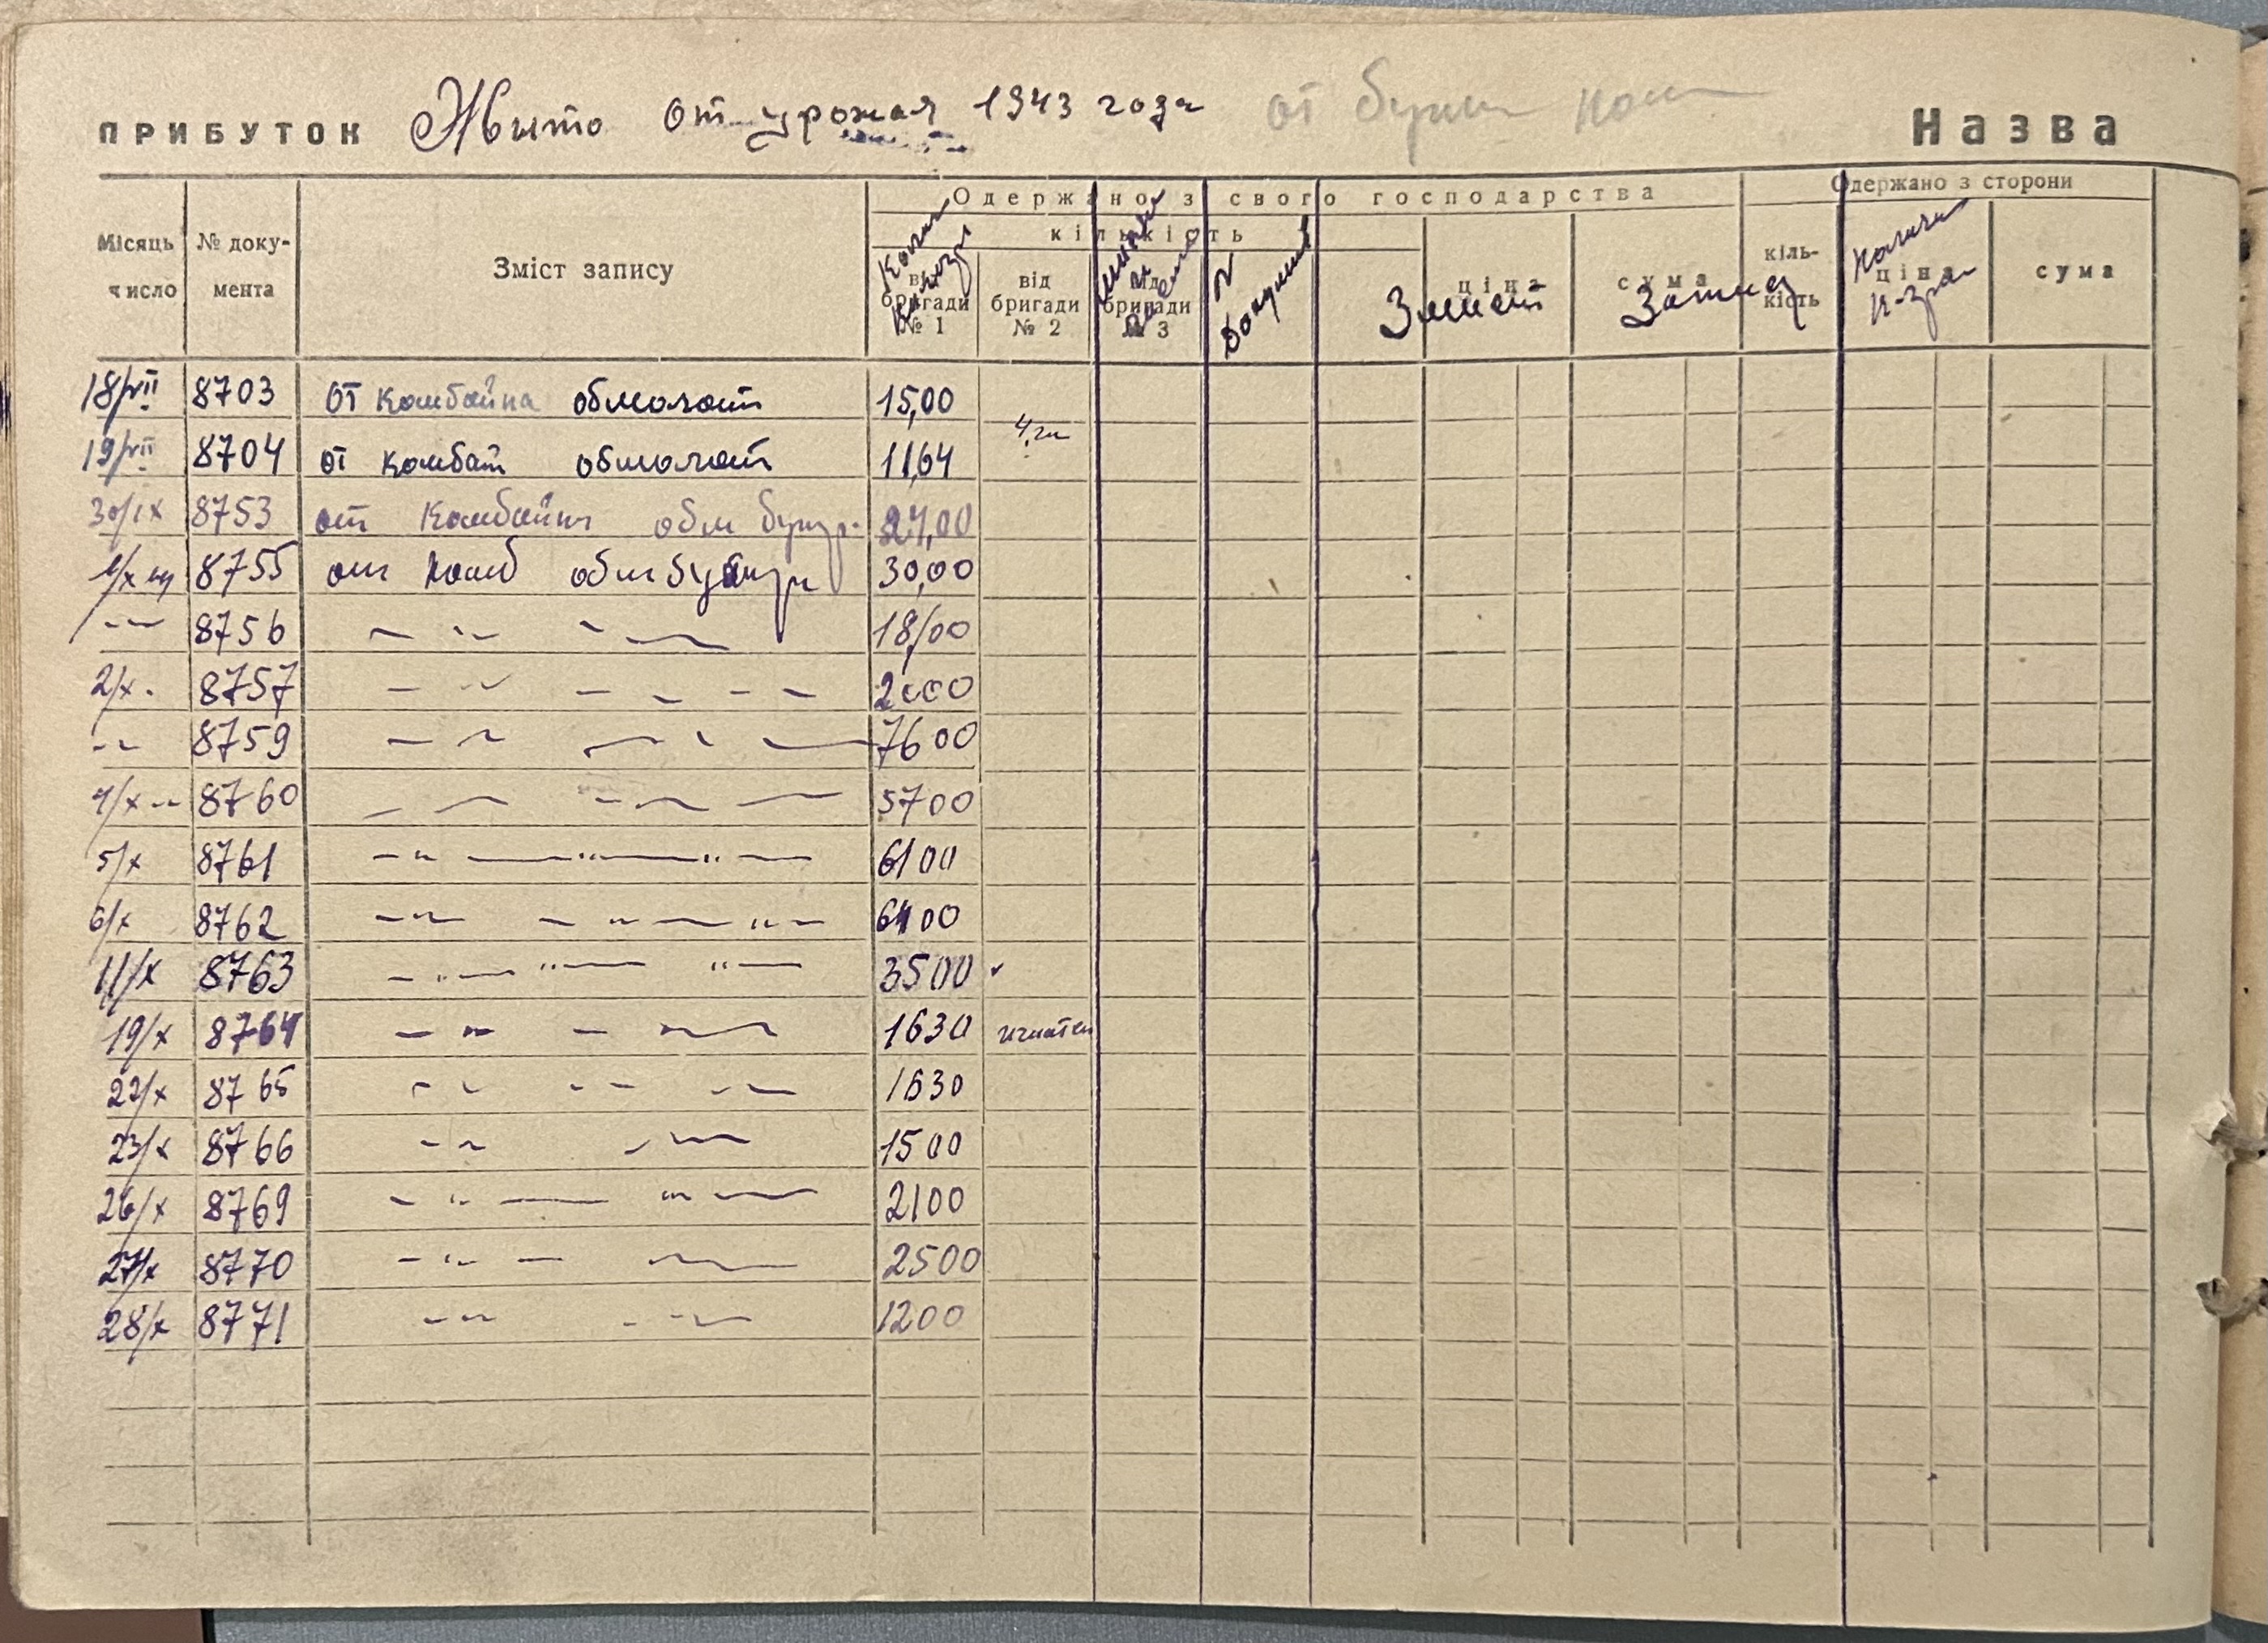 ПРИБУТОК Жыто от урожая 1943 года от Назва
Одержано з свого господарства Одержано з сторони
Місяць число № документа Зміст запису кількість ціна сума кількість ціна сума
від бригади № 1 від бригади № 2 від бригади № 3
Змист Запис
18/VII 8703 от комбайна обмолот 15,00
19/VII 8704 от комбат обмолот 11,64
30/IX 8753 от Комбайна обм 27,00
1/X 8755 от комб обм 30,00
-"- 8756 18/00
2/X. 8757 2000
-"- 8759 7600
4/X 8760 5700
5/X 8761 — " — " — " — 6100
6/X 8762 — " — — " — " — 6400
11/X 8763 — " — " — " — 3500
19/X 8764 1630
22/X 8765 1630
23/X 8766 1500
26/X 8769 — " — " — 2100
27/X 8770 2500
28/X 8771 1200